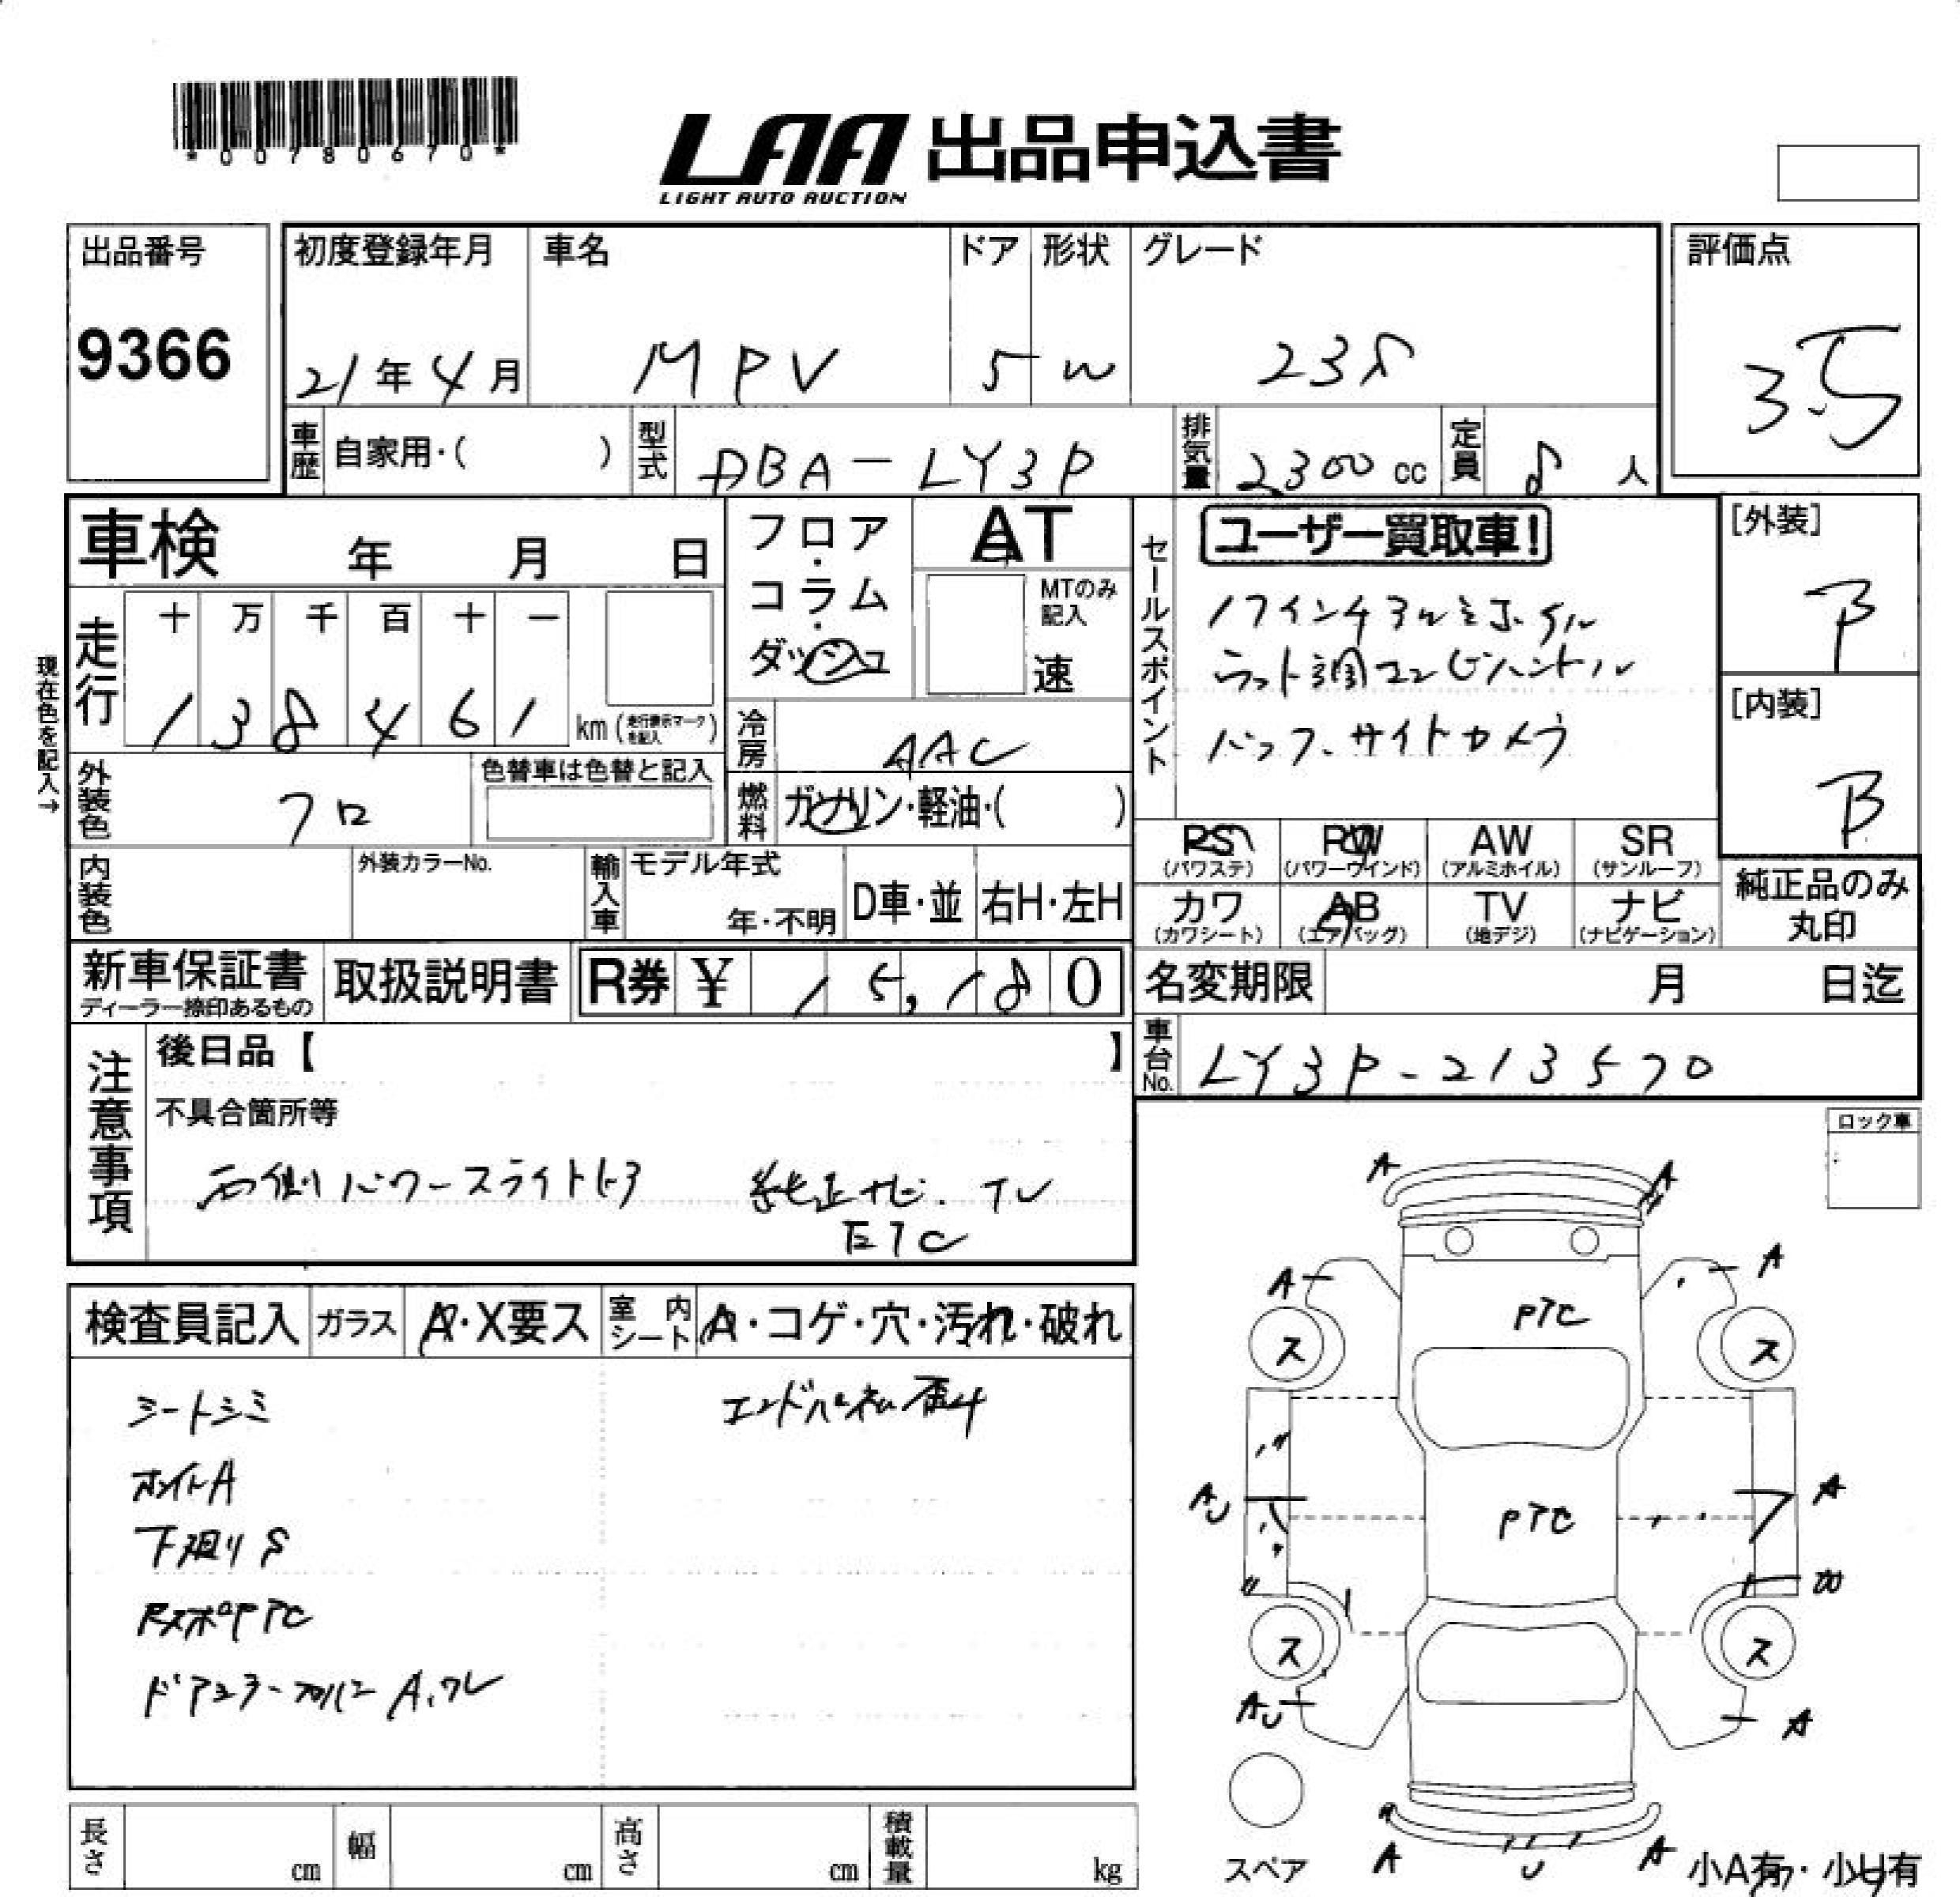 *00780670*
LAA 出品申込書
LIGHT AUTO AUCTION
出品番号
9366
初度登録年月
21年4月
車名
MPV
ドア
5
形状
W
グレード
23S
評価点
3.5
車歴
自家用・( )
型式
DBA-LY3P
排気量
2300cc
定員
8人
車検 年 月 日
フロア・コラム・ダッシュ
AT
MTのみ記入
速
セールスポイント
ユーザー買取車!
17インチアルミホイル
ラット調コンビハンドル
バック、サイドカメラ
[外装]
B
[内装]
B
現在色を記入→
走行
十 万 千 百 十 一
1 3 8 4 6 1
km(走行表示マークを記入)
冷房
AAC
外装色
クロ
色替車は色替と記入
燃料
ガソリン・軽油・( )
PS (パワステ)
PW (パワーウインド)
AW (アルミホイル)
SR (サンルーフ)
カワ (カワシート)
AB (エアバッグ)
TV (地デジ)
ナビ (ナビゲーション)
純正品のみ
丸印
内装色
外装カラーNo.
輸入車
モデル年式
年・不明
D車・並
右H・左H
新車保証書
ディーラー捺印あるもの
取扱説明書
R券 ¥ 15,180
名変期限 月 日迄
車台No.
LY3P-213570
注意事項
後日品【 】
不具合箇所等
右側パワースライドドア 純正ナビ、TV
ETC
ロック車
検査員記入
ガラス
A・X要ス
室内シート
A・コゲ・穴・汚れ・破れ
シートシミ
エンドパネル歪み
ホイルA
下廻りS
RスポPTC
ドアミラー A、ワレ
A A
A A
PTC
ス ス
AU PTC A
W
ス ス
AU A
スペア
A U A
小A有・小U有
長さ cm
幅 cm
高さ cm
積載量 kg